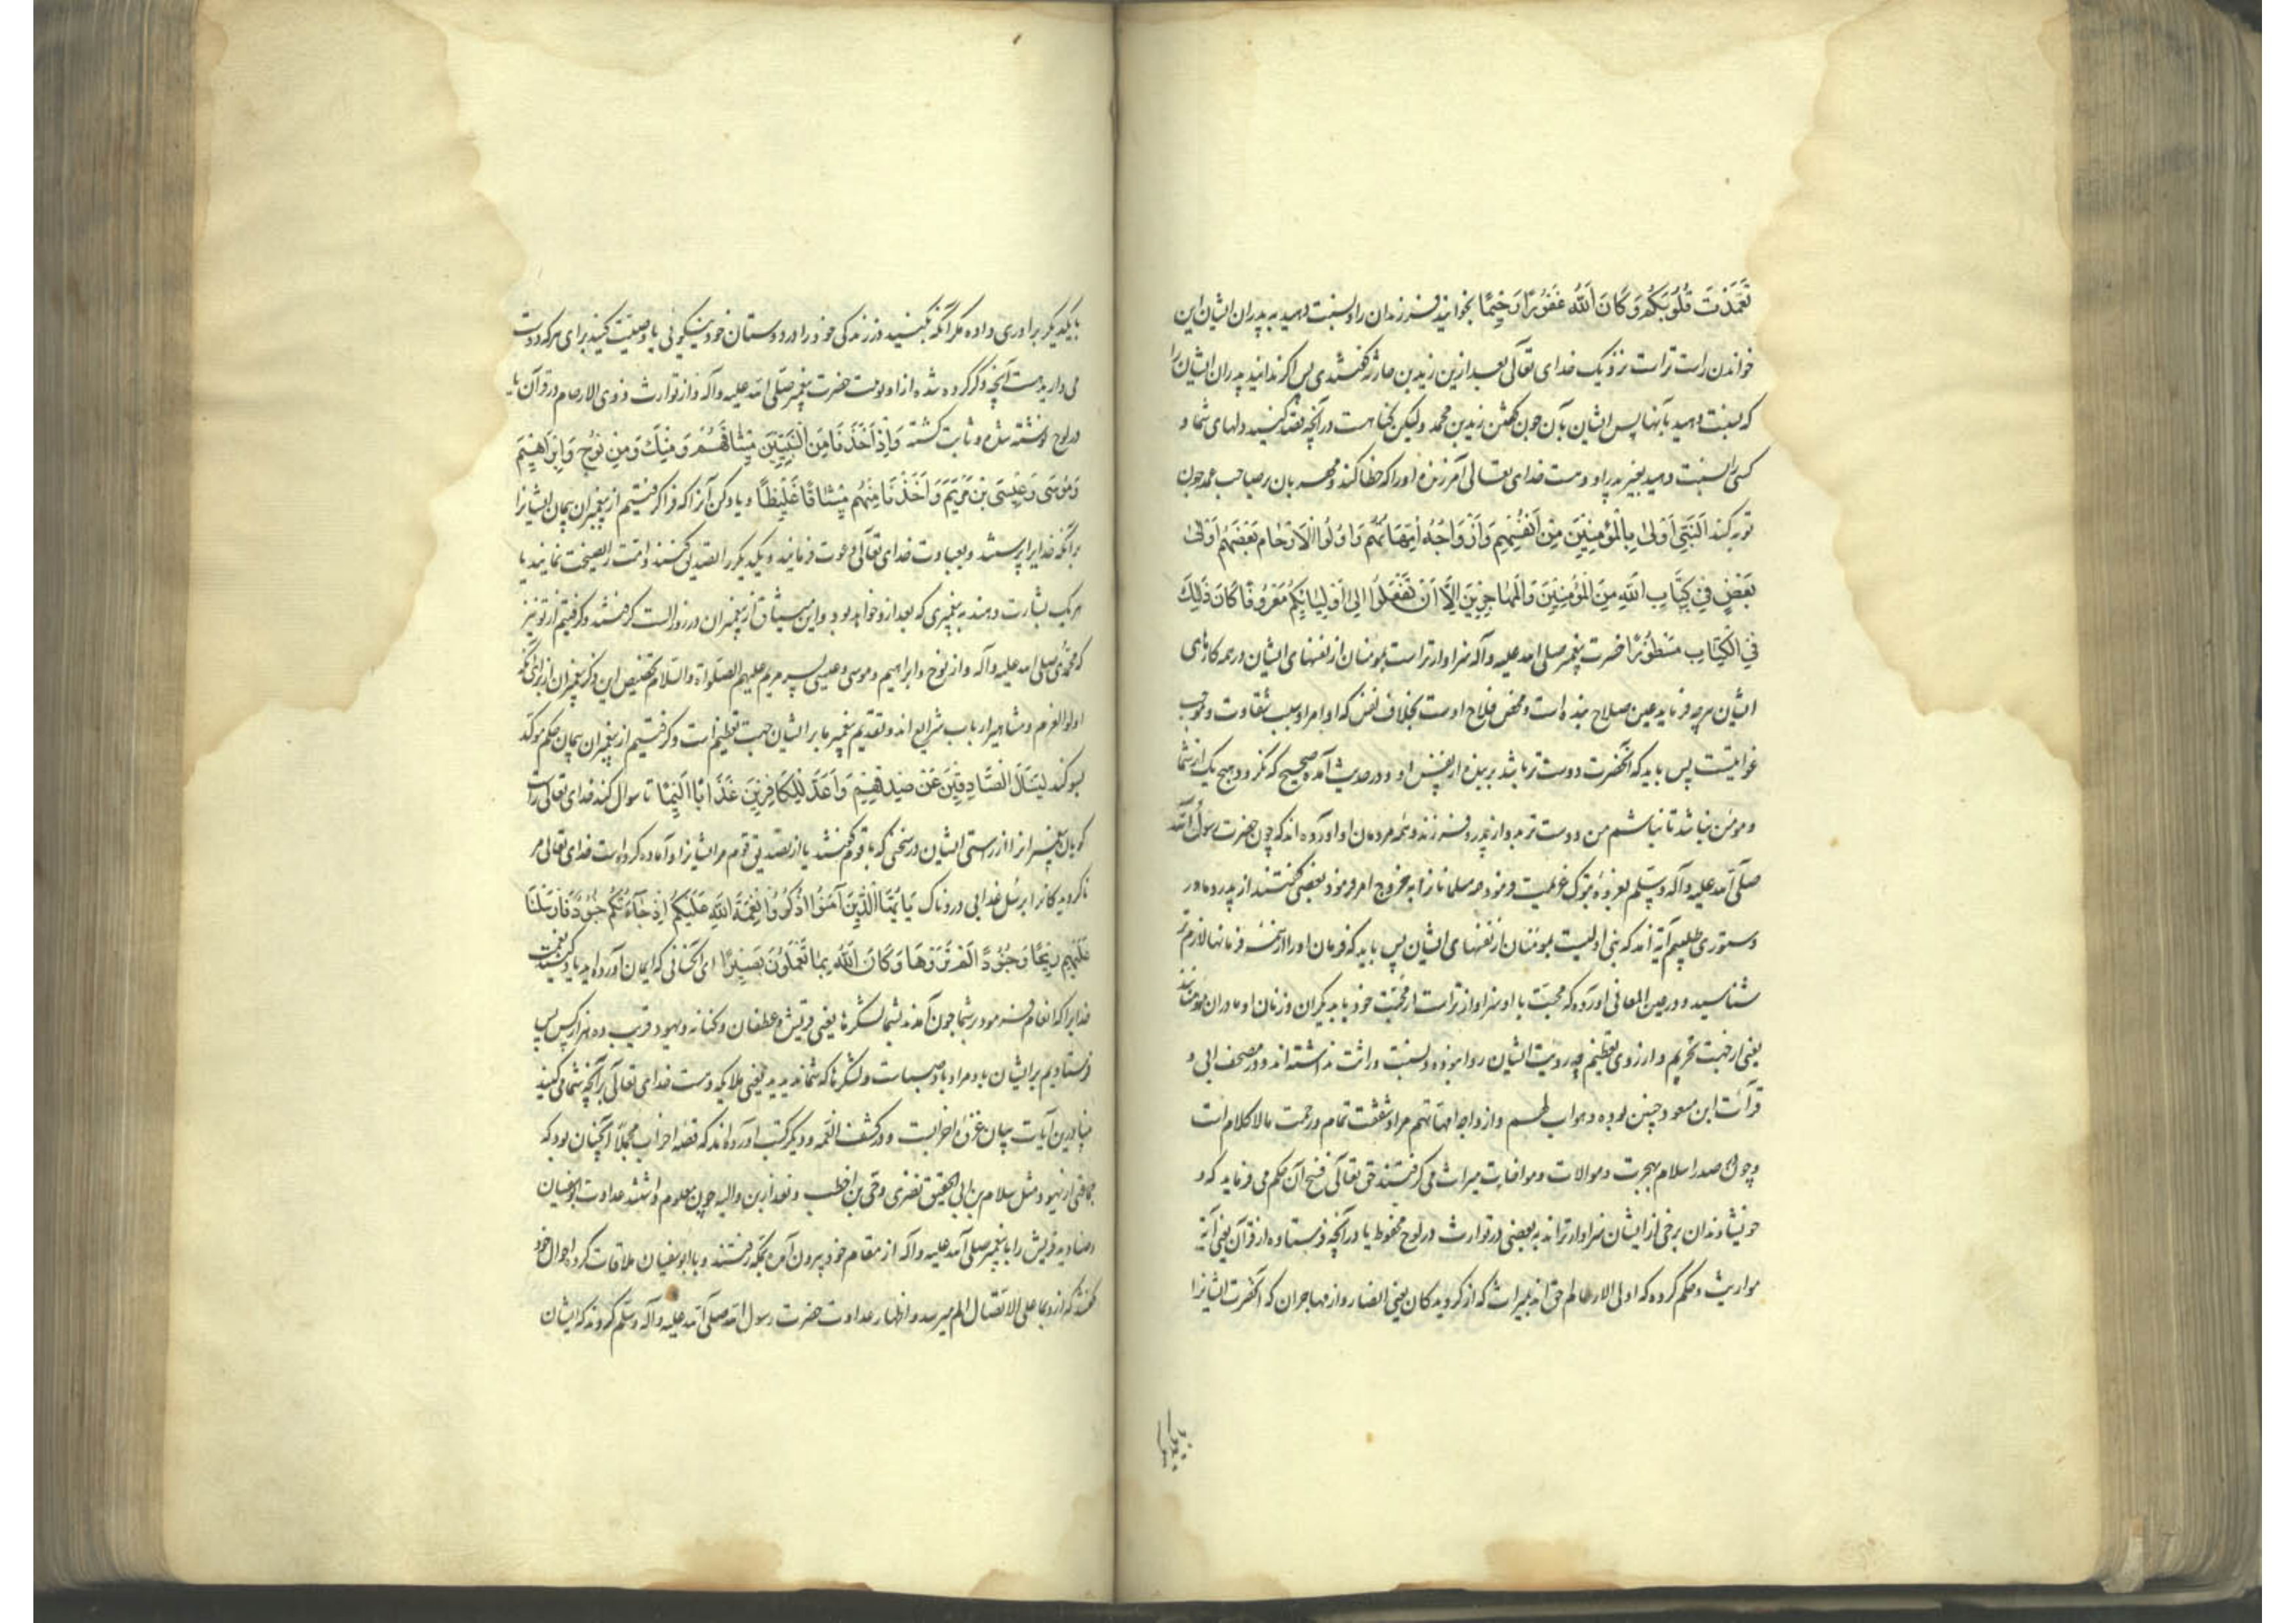 تَعَمَّدَتْ قُلُوبُكُمْ وَكَانَ اللهُ غَفُورًا رَحِيمًا بخوانید فرزندان را و نسبت دهید به پدران ایشان این
خواندن راست تر است نزدیک خدای تعالی بعد ازین زید بن حارثه گفتندی پس اگر ندانید پدران ایشان را
که نسبت دهید بآنها پس ایشان بآن چون گفتن زید بن محمد ولیکن گناهست در آنچه قصد کنید دلهای شما و
کسی را نسبت دهید بغیر پدر او وهست خدای تعالی آمرزنده اورا که خطا کند ومهربان بر صاحب عمد چون
توبه کند اَلنَّبِيُّ اَوْلىٰ بِالْمُؤْمِنِينَ مِنْ اَنْفُسِهِمْ وَاَزْوَاجُهُ اُمَّهَاتُهُمْ وَاُولُوا الْاَرْحَامِ بَعْضُهُمْ اَوْلىٰ
بِبَعْضٍ فِي كِتَابِ اللهِ مِنَ الْمُؤْمِنِينَ وَالْمُهَاجِرِينَ اِلَّا اَنْ تَفْعَلُوا اِلىٰ اَوْلِيَائِكُمْ مَعْرُوفًا كَانَ ذٰلِكَ
فِي الْكِتَابِ مَسْطُورًا حضرت پیغمبر صلی الله علیه وآله سزاوارتر است بمومنان از نفسهای ایشان در همه کارهای
ایشان هرچه فرماید عین صلاح بنده است ومحض فلاح اوست بخلاف نفس که اوامر او سبب شقاوت وموجب
غوایتست پس باید که آنحضرت دوست تر باشد بر بنده از نفس او و در حدیث آمده صحیح که نگرود هیچ یک از شما
و مومن نباشد تا نباشم من دوست تر بدو از پدر و فرزند و همه مردمان و آورده اند که چون حضرت رسول الله
صلی الله علیه وآله وسلم بغزوه تبوک عزیمت فرمود همه مسلمانان را بخروج امر فرمود بعضی گفتند از پدر و مادر
دستوری طلبیم آیه آمد که نبی اولیست بمومنان از نفسهای ایشان پس باید که فرمان اورا از همه فرمانها لازم تر
شناسید و در عین المعانی آورده که محبت با او سزاوارتر است از محبت خود با دیگران و زنان او مادران مومنانند
یعنی از جهت تحریم و از روی تعظیم چه رویت ایشان روا نبوده و نسبت وراثت نداشته اند و در مصحف ابی و
قرآت ابن مسعود چنین بوده وهو اب لهم وازواجه امهاتهم مراد شفقت تمام ورحمت مالا کلام است
وچون صدر اسلام بهجرت وموالات ومواخات میراث می گرفتند حق تعالی فسخ آن حکم می فرماید که و
خویشاوندان برخی از ایشان سزاوارترند به بعضی در توارث در لوح محفوظ یا در آنچه فرستاده از قرآن یعنی آیه
مواریث وحکم کرده که اولی الارحام احق اند بمیراث که از گرویدگان یعنی انصار و از مهاجران که آنحضرت ایشانرا
بایکدیگر برادری داده مگر آنکه بکنید در زندگی خود را در دوستان خود نیکوئی یا وصیت کنید برای هرکه دوست
می دارید هست آنچه ذکر کرده شده از اولویت حضرت پیغمبر صلی الله علیه وآله و از توارث ذوی الارحام در قرآن یا
در لوح نوشته شده و ثابت گشته وَاِذْ اَخَذْنَا مِنَ النَّبِيِّينَ مِيثَاقَهُمْ وَمِنْكَ وَمِنْ نُوحٍ وَاِبْرَاهِيمَ
وَمُوسَى وَعِيسَى بْنِ مَرْيَمَ وَاَخَذْنَا مِنْهُمْ مِيثَاقًا غَلِيظًا و یاد کن آنرا که فرا گرفتیم از پیغمبران پیمان ایشانرا
برآنکه خدایرا پرستند وبعبادت خدای تعالی دعوت فرمایند و یکدیگر را تصدیق کنند و امت را نصیحت نمایند یا
هریک بشارت دهند به پیغمبری که بعد ازو خواهد بود واین میثاق از پیغمبران در روز الست گرفتند وگرفتیم از تو نیز
که محمدی صلی الله علیه وآله و از نوح و ابراهیم و موسی و عیسی پسر مریم علیهم الصلواة والسلام تخصیص این ذکر پیغمبران از برای آنکه
اولوا العزم و مشاهیر ارباب شرایع اند و تقدیم پیغمبر ما بر ایشان جهت تعظیم است وگرفتیم از پیغمبران پیمان محکم موکد
بسوگند لِيَسْأَلَ الصَّادِقِينَ عَنْ صِدْقِهِمْ وَاَعَدَّ لِلْكَافِرِينَ عَذَابًا اَلِيمًا تا سوال کند خدای تعالی راست
گویان پیغمبرانرا از راستی ایشان در سخنی که با قوم گفتند یا از تصدیق قوم مر ایشانرا و آماده کرده است خدای تعالی مر
ناگرویدگانرا برسل عذابی دردناک يَا اَيُّهَا الَّذِينَ آمَنُوا اذْكُرُوا نِعْمَةَ اللهِ عَلَيْكُمْ اِذْ جَاءَتْكُمْ جُنُودٌ فَاَرْسَلْنَا
عَلَيْهِمْ رِيحًا وَجُنُودًا لَمْ تَرَوْهَا وَكَانَ اللهُ بِمَا تَعْمَلُونَ بَصِيرًا ای کسانی که ایمان آورده اید یاد کنید نعمت
خدایرا که انعام فرمود بر شما چون آمدند بشما لشکرها یعنی قریش و غطفان و کنانه و یهود قریب ده هزار کس پس
فرستادیم بر ایشان باد و مراد باد صباست و لشکرها که شما ندیدید یعنی ملایکه وهست خدای تعالی بر آنچه شما می کنید
بینا درین آیات بیان غزوه احزابست و در کشف الغمه و دیگر کتب آورده اند که قصه احزاب مجملا آنچنان بود که
جماعتی از یهود مثل سلام بن ابی الحقیق نضری وحی بن اخطب و بعد ازین والبه چون معلوم داشتند عداوت ابوسفیان
وصنادید قریش را با پیغمبر صلی الله علیه وآله از مقام خود بیرون آمده بمکه رفتند و با ابوسفیان ملاقات کرده احوال خود
گفتند که از وی بما علی الاتصال الم میرسد و اظهار عداوت حضرت رسول الله صلی الله علیه وآله وسلم کردند که ایشان